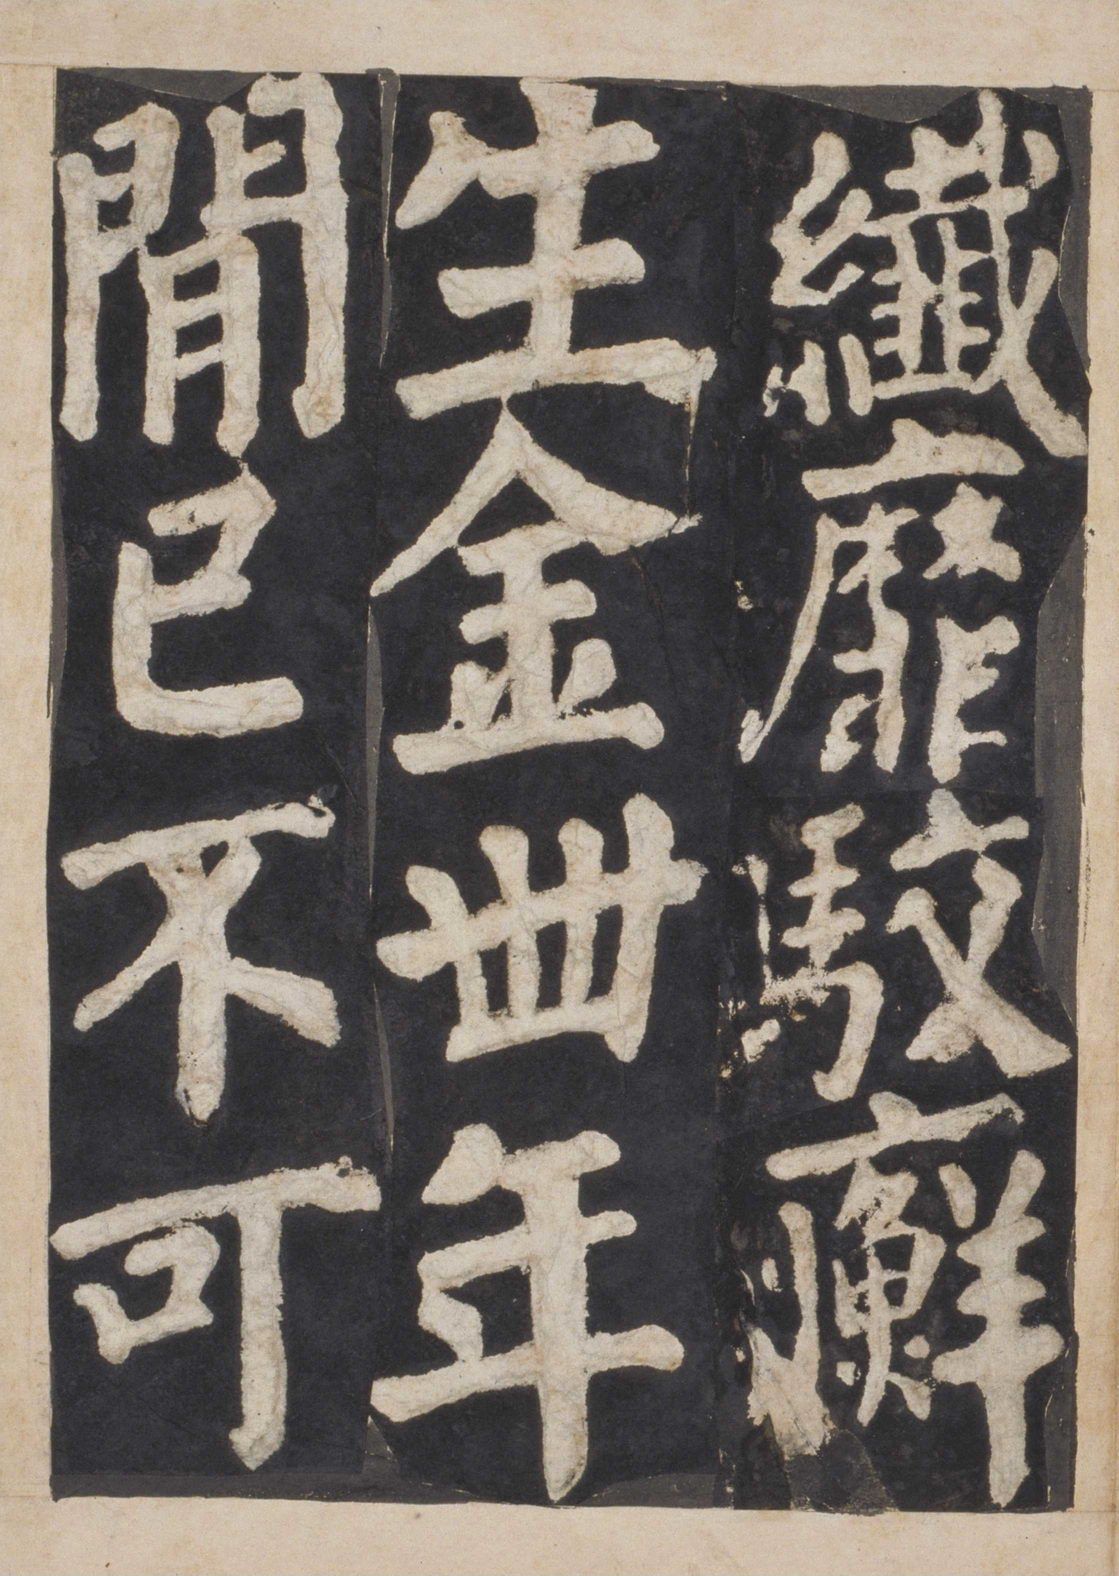 纖靡駮癬
生金卌年
閒已不可